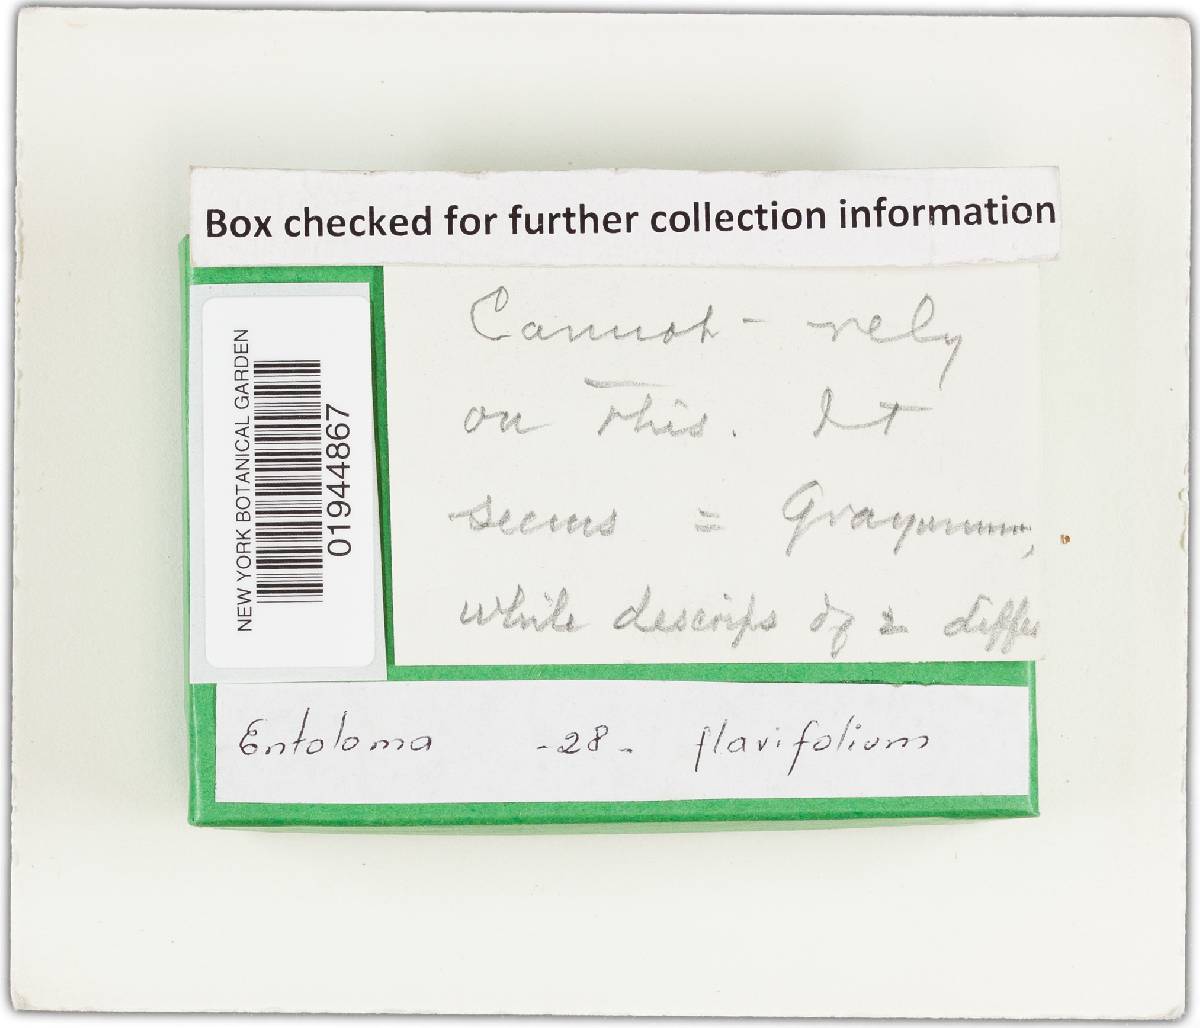 Box checked for further collection information
NEW YORK BOTANICAL GARDEN
01944867
Cannot - rely
on this. It
seems = Grayanum,
while descrips of 2 differ
Entoloma -28- flavifolium